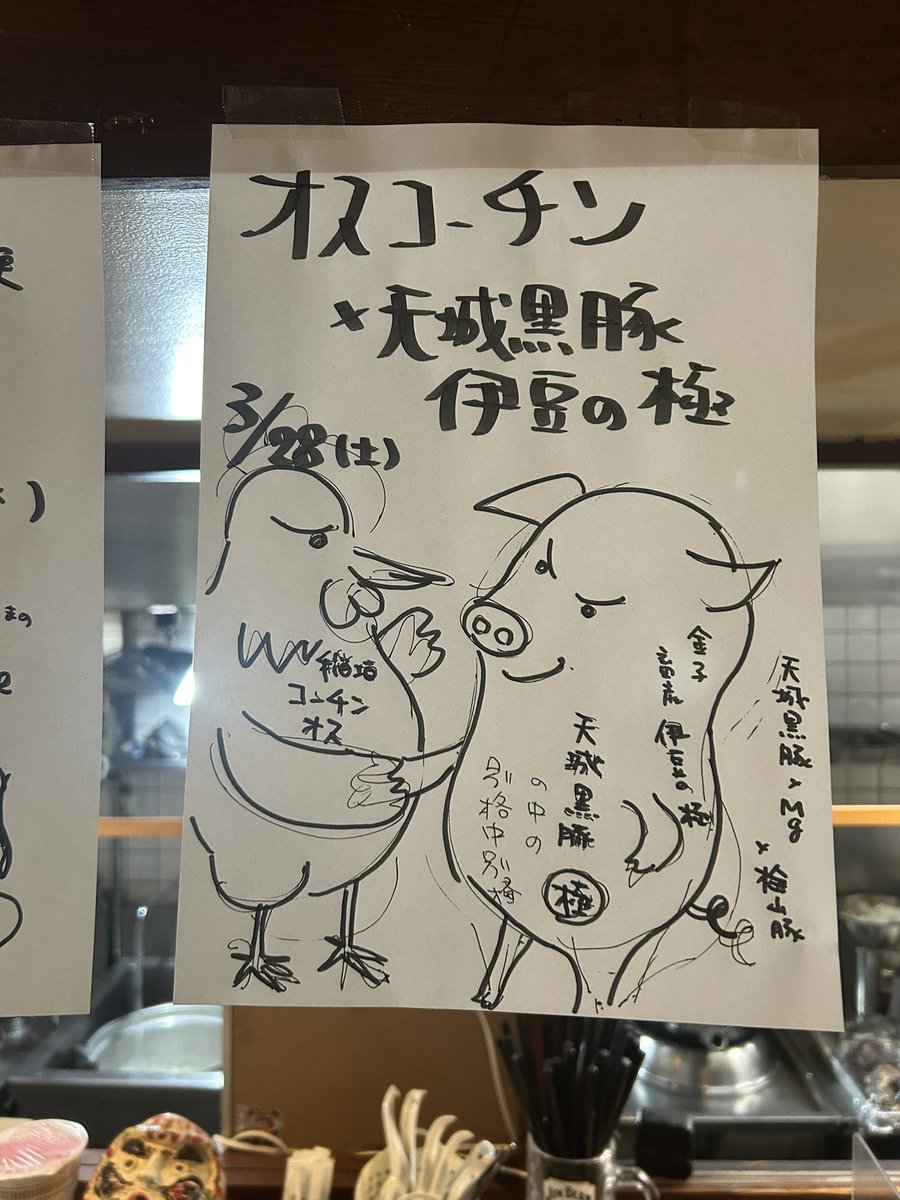 オスコーチン
×天城黒豚
伊豆の極
3/28(土)
コーチン
オス
金子
畜産
伊豆の極
天城黒豚
極
の中の
別格中別格
天城黒豚×Mg
×桧山豚
まの
JIM BEAM